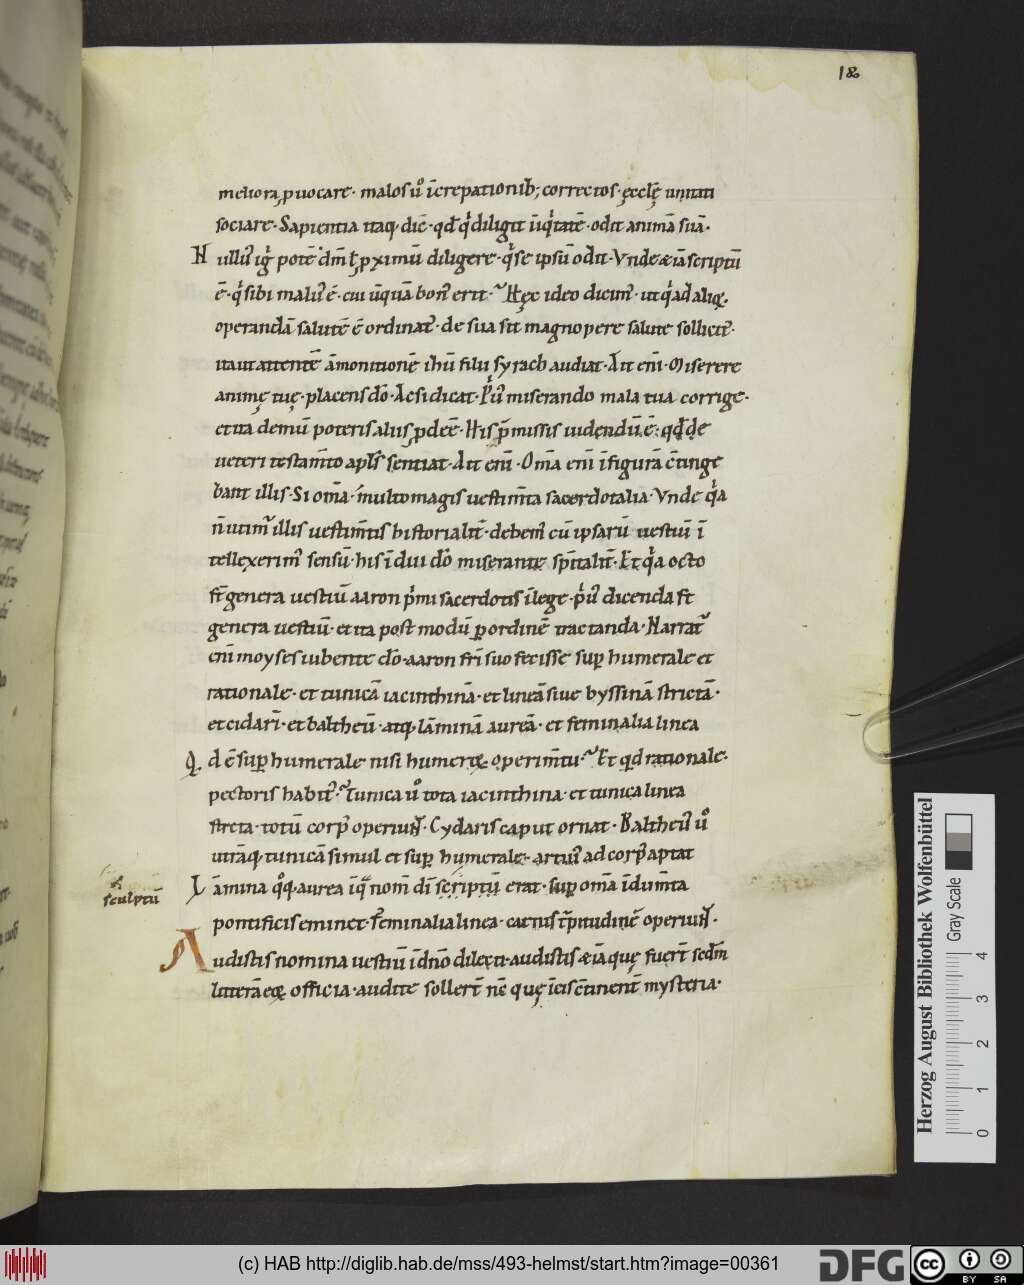 18
meliora ꝓuocare· malos ů īcrepationib; correctos· ęcclę̄ unitati
sociare· Sapientia itaq· dic̄· qd̄ qͥ diligit īiqͥtatē· odit animā suā·
Nullus igͥ potē· dm̄ ł ꝓximū diligere· qͥ se ipsū odit· Vnde & iā scriptū
ē· qͥ sibi malus ē· cui ūquā bon᾿ erit· Hęc ideo dicim᾿· ut qͥ ad aliq·
operandā salutē ē ordinat᾿· de sua sit magnopere salute sollicit᾿·
ita ut attente āmonitionē ihū filii syrach audiat· Ait eni̅· Miserere
animę tuę· placens dō· Ac si dicat· Pͥus miserando mala tua corrige·
et ita demū poteris aliis ꝓdeē· His p̄missis uidendū ē· qd de
ueteri testam̅to apl̄s sentiat· Ait eni̅· Om̅a eni̅ ī figura c̄tinge
bant illis· Si om̅a· multo magis uestim̅ta sacerdotalia· Vnde qͥa
n̄ utim᾿ illis uestim̅tis historialit̄· debem᾿ cū ipsarū uestiū ī
tellexerim᾿ sensū· his īdui dō miserante sp̄italit̄· Et qͥa octo
ft̄ genera uestiū aaron pͥmi sacerdotis ī lege· pͥus dicenda st̄
genera uestiū· et ita postmodū ꝑ ordinē tractanda· Narrat᾿
eni̅ moyses iubente dō· aaron fr̄i suo fecisse suꝑ humerale et
rationale· et tunicā iacinthinā· et lineā siue byssinā strictā·
et cidarī· et baltheū· atq· lāminā aureā· et feminalia linea
Qd ē suꝑ humerale nisi humeros operim̅tū· Et qd rationale·
pectoris habit᾿· Tunica ů tota iacinthina· et tunica linea
stricta· totū corp᾿ operiunt· Cydaris caput ornat· Baltheus ů
utrāq· tunicā simul et suꝑ humerale· artius ad corp᾿ aptat
Lāmina qͦq· aurea ī qͣ nom̄ dī scriptū erat· suꝑ om̅a īdum̅ta
sculptū
pontificis eminet· Feminalia linea· carnis t᾿pitudinē operiunt·
Audistis nomina uestiū ī dn̄o dilecti· audistis & iā quę fuer̄t sedm̅
litterā eoꝝ officia· audite sollert̄ nc̄ quę ī eis c̄tinent᾿ mysteria·
Herzog August Bibliothek Wolfenbüttel
Gray Scale
0 1 2 3 4
(c) HAB http://diglib.hab.de/mss/493-helmst/start.htm?image=00361
DFG
cc BY SA